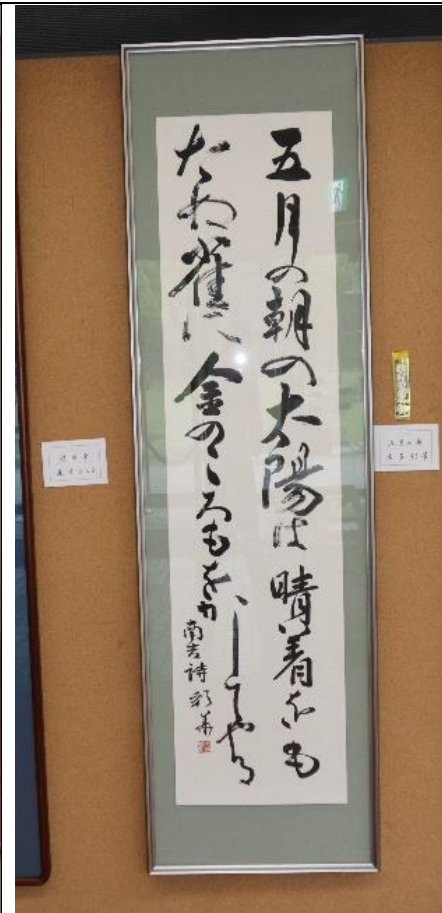 五月の朝の太陽は晴着をも
たぬ雀に金のころもをかしてやる
南吉詩 彩華